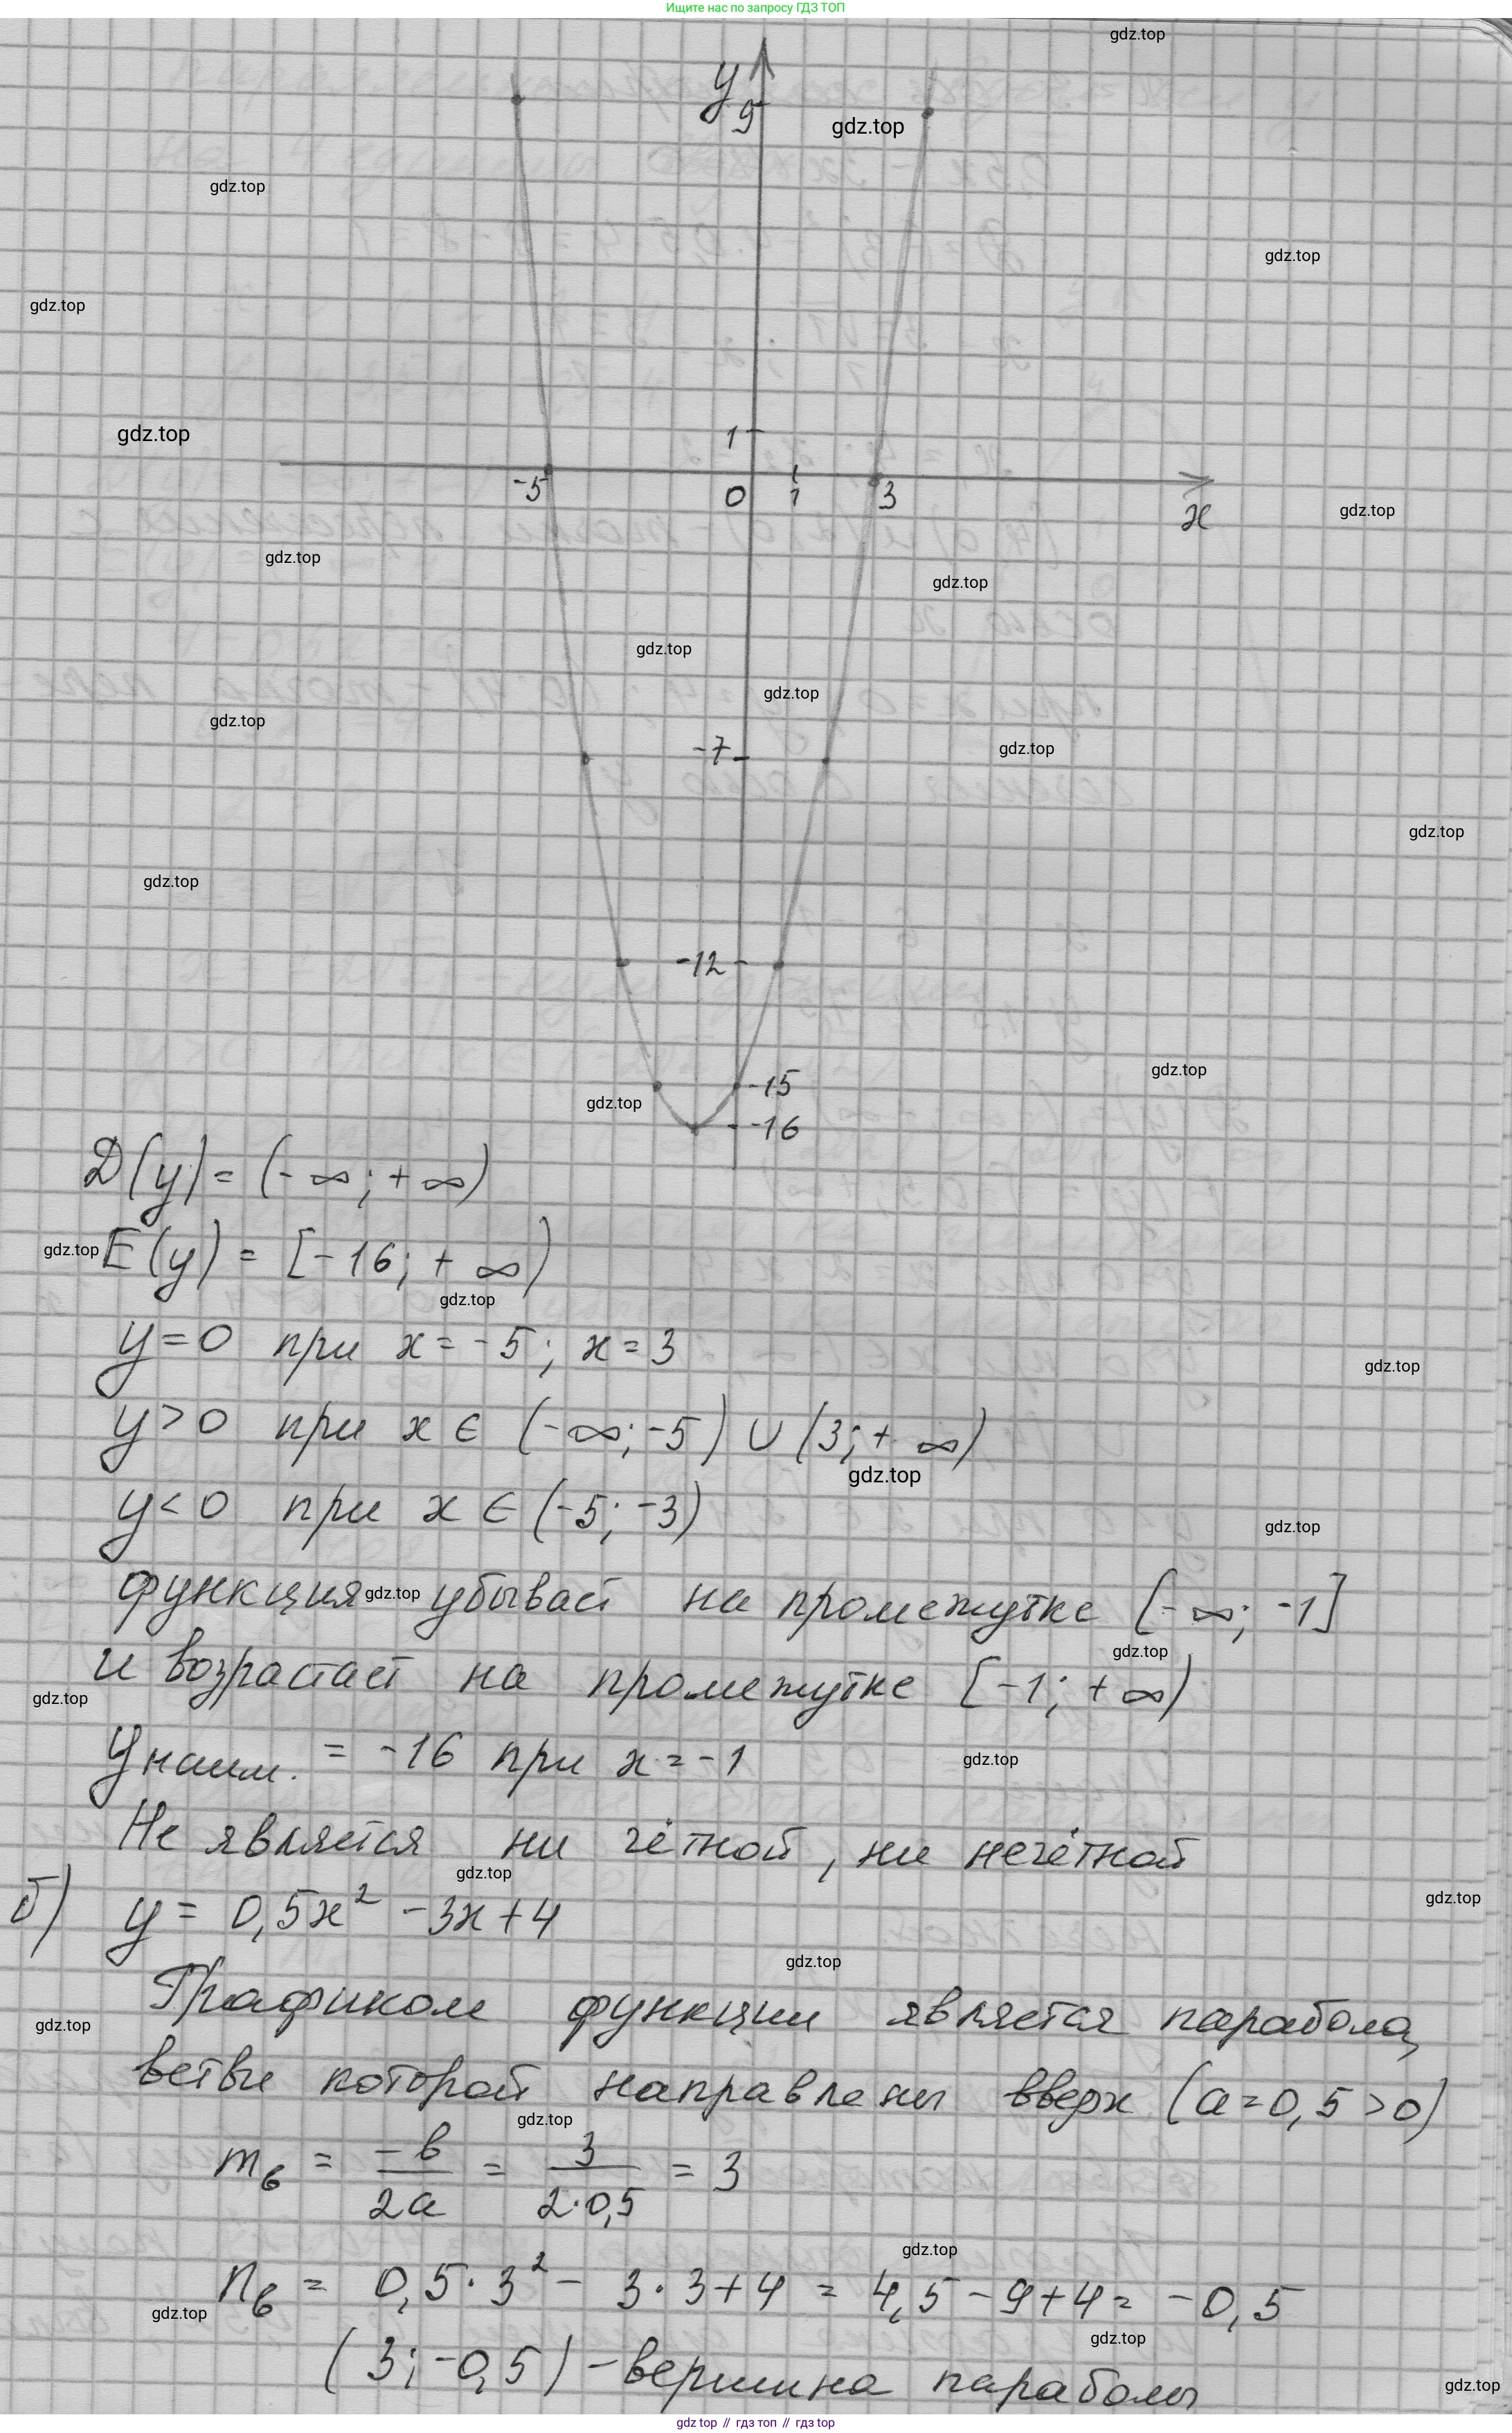 Ищите нас по запросу ГДЗ ТОП
gdz.top
y
9
gdz.top
gdz.top
gdz.top
gdz.top
gdz.top
1
-5
0
1
3
x
gdz.top
gdz.top
gdz.top
gdz.top
gdz.top
gdz.top
-7
gdz.top
gdz.top
gdz.top
-12
gdz.top
-15
gdz.top
-16
D(y) = (-∞; +∞)
gdz.top
E(y) = [-16; + ∞)
gdz.top
y=0 при x = -5; x = 3
gdz.top
y>0 при x ∈ (-∞; -5) ∪ (3; + ∞)
gdz.top
y<0 при x ∈ (-5; -3)
gdz.top
функция убывает на промежутке [-∞; -1]
gdz.top
gdz.top
и возрастает на промежутке [-1; + ∞)
gdz.top
yнаим. = -16 при x = -1
gdz.top
Не является ни чётной, ни нечётной
gdz.top
gdz.top
б) y = 0,5x² - 3x + 4
gdz.top
Графиком функции является парабола,
gdz.top
ветви которой направлены вверх (a=0,5 >0)
gdz.top
mв = -в/2a = 3/2·0,5 = 3
gdz.top
nв = 0,5·3² - 3·3+4 = 4,5-9+4= -0,5
gdz.top
gdz.top
(3; -0,5) - вершина параболы
gdz.top
gdz top // гдз топ // гдз top